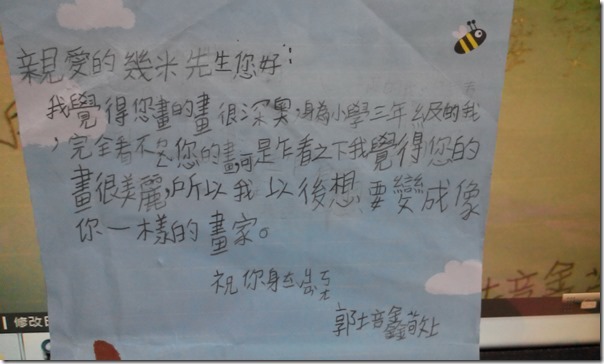 親愛的幾米先生您好:
我覺得您畫的畫很深奧,身為小學三年級的我
,完全看不您的畫,可是乍看之下我覺得您的
畫很美麗,所以我以後想要變成像
你一樣的畫家。
祝你身
郭鑫敬上
修改